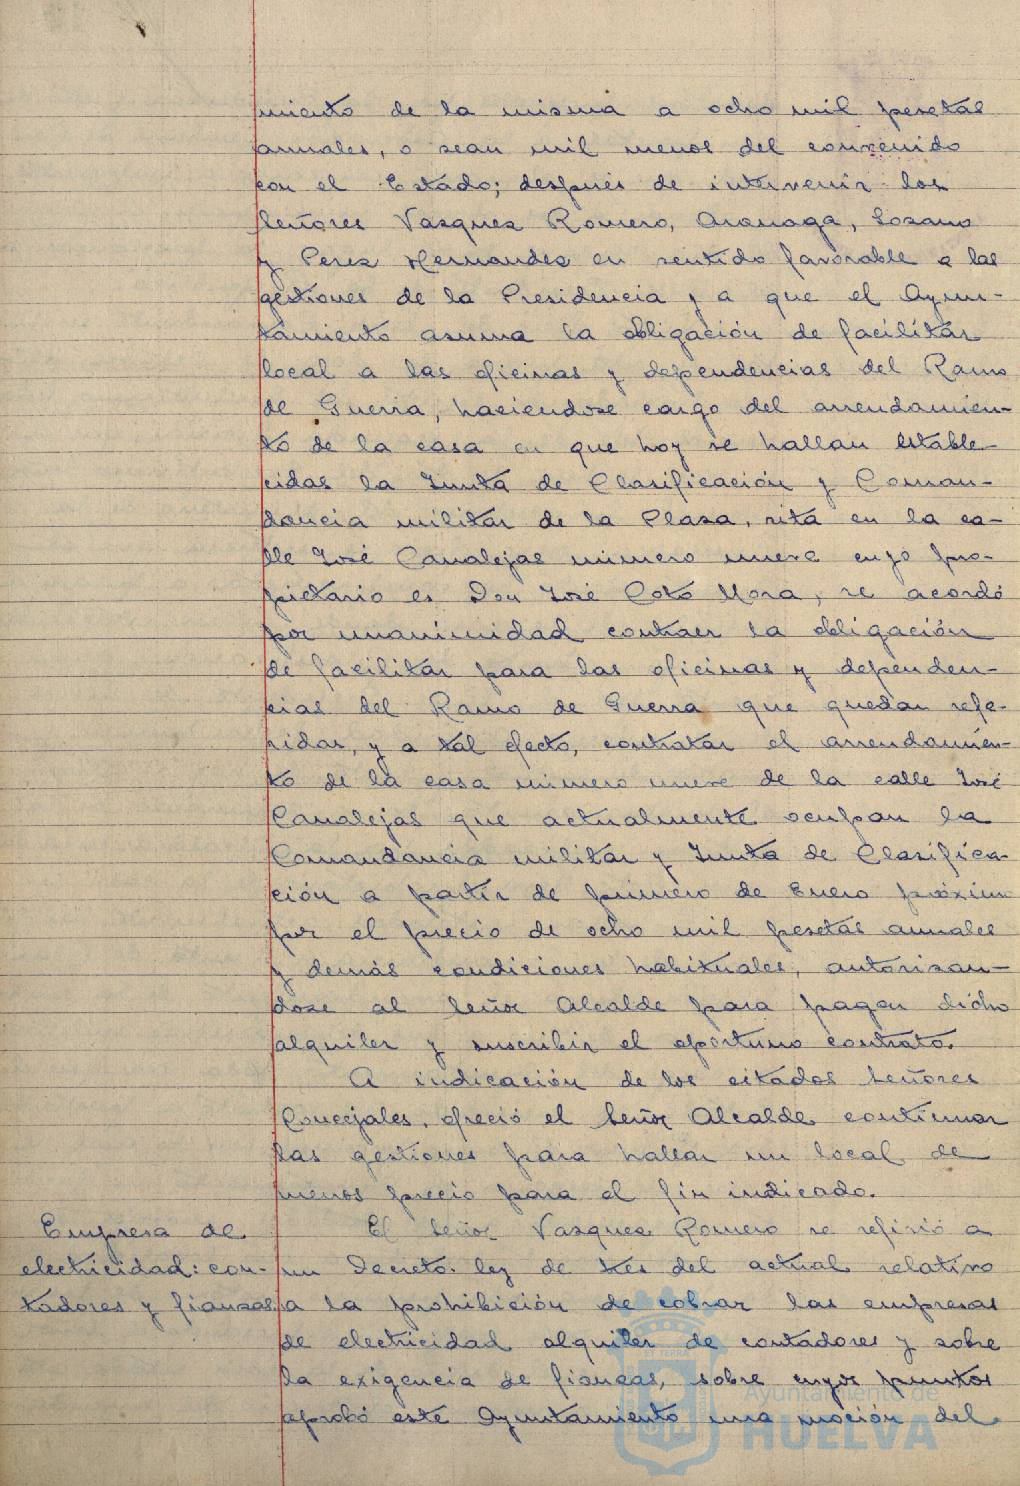 miento de la misma a ocho mil pesetas
anuales, o sean mil menos del convenido
con el Estado; después de intervenir los
Señores Vazquez Romero, Aronaga, Lozano
y Perez Hernandez en sentido favorable a las
gestiones de la Presidencia y a que el Ayun-
tamiento asuma la obligación de facilitar
local a las oficinas y dependencias del Ramo
de Guerra, haciendose cargo del arrendamien-
to de la casa en que hoy se hallan estable-
cidas la Junta de Clasificación y Coman-
dancia militar de la Plaza, sita en la ca-
lle José Canalejas número nueve cuyo pro-
pietario es Don José Coto Mora, se acordó
por unanimidad contraer la obligación
de facilitar para las oficinas y dependen-
cias del Ramo de Guerra que quedan refe-
ridas, y a tal efecto, contratar el arrendamien-
to de la casa número nueve de la calle José
Canalejas que actualmente ocupan la
Comandancia militar y Junta de Clasifica-
ción a partir de primero de Enero próximo
por el precio de ocho mil pesetas anuales
y demás condiciones habituales, autorizan-
dose al Señor Alcalde para pagar dicho
alquiler y suscribir el oportuno contrato.
A indicación de los citados Señores
Concejales, ofreció el Señor Alcalde continuar
las gestiones para hallar un local de
menos precio para el fin indicado.
Empresa de
electricidad: con-
tadores y fianzas.
El Señor Vazquez Romero se refirió a
un Decreto-ley de tres del actual relativo
a la prohibición de cobrar las empresas
de electricidad alquiler de contadores y sobre
la exigencia de fianzas, sobre cuyos puntos
aprobó este Ayuntamiento una moción del
Ayuntamiento de
HUELVA